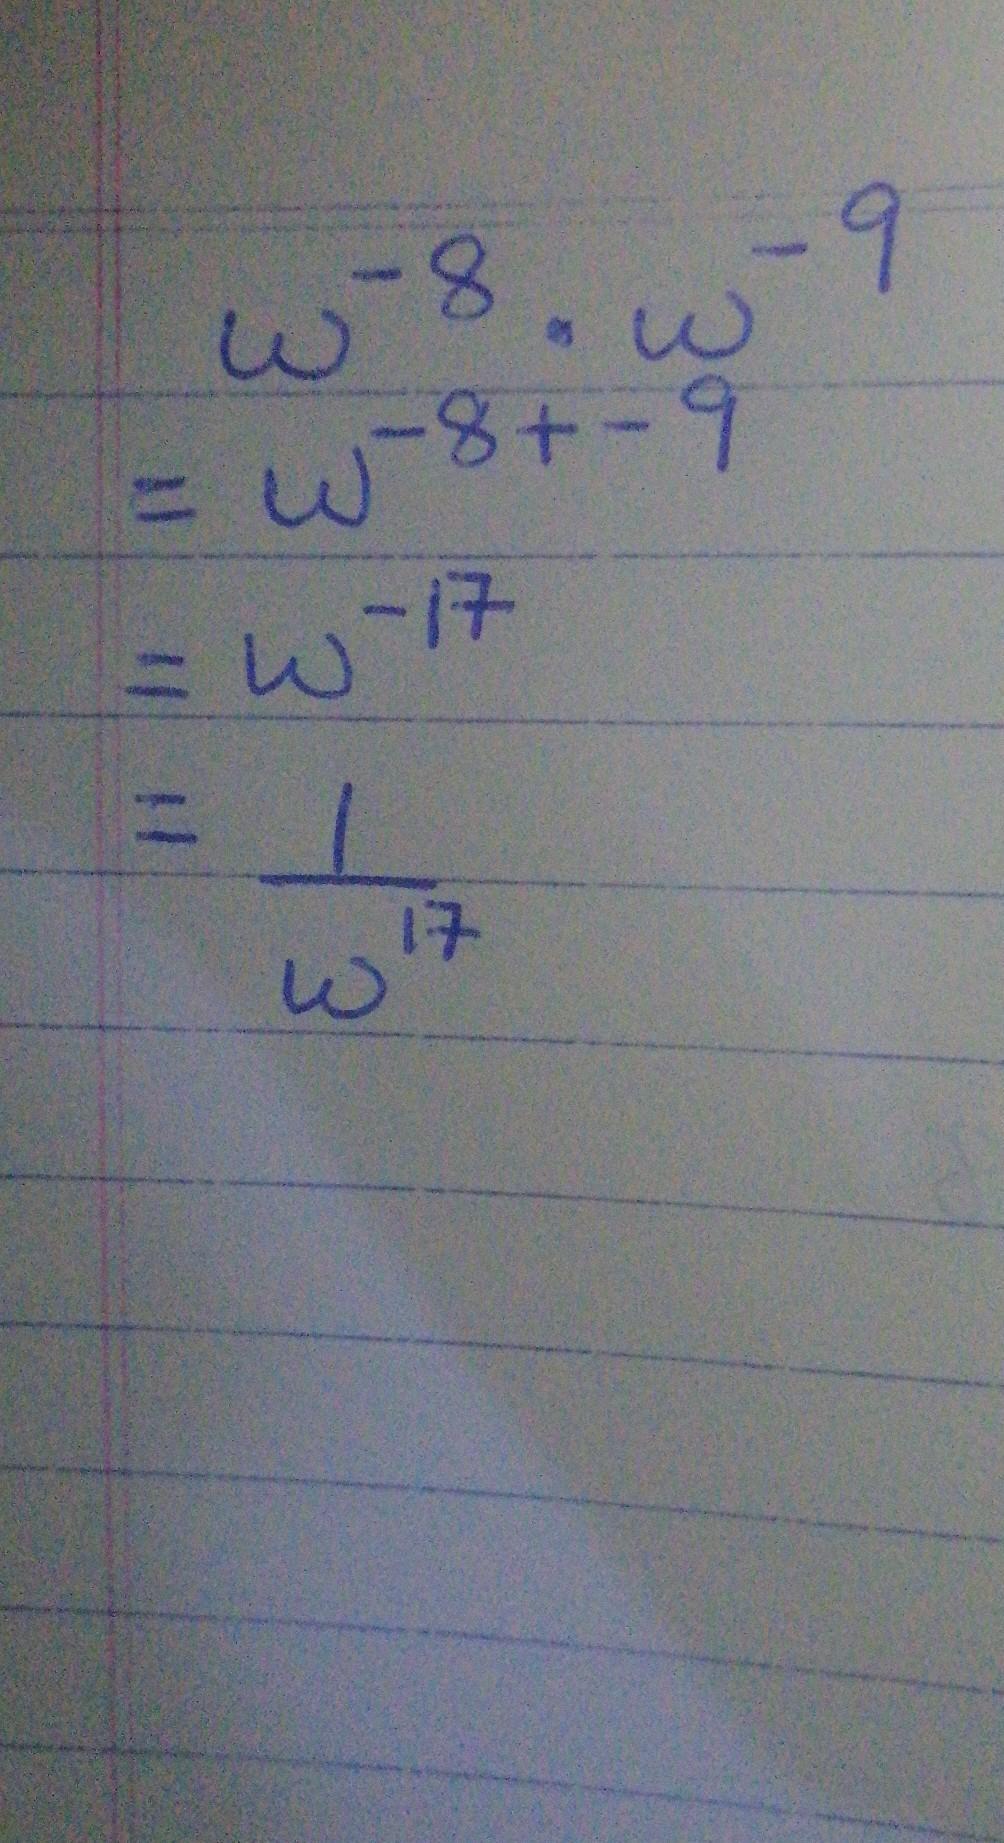 w^-8 · w^-9
= w^-8+-9
= w^-17
= 1/w^17